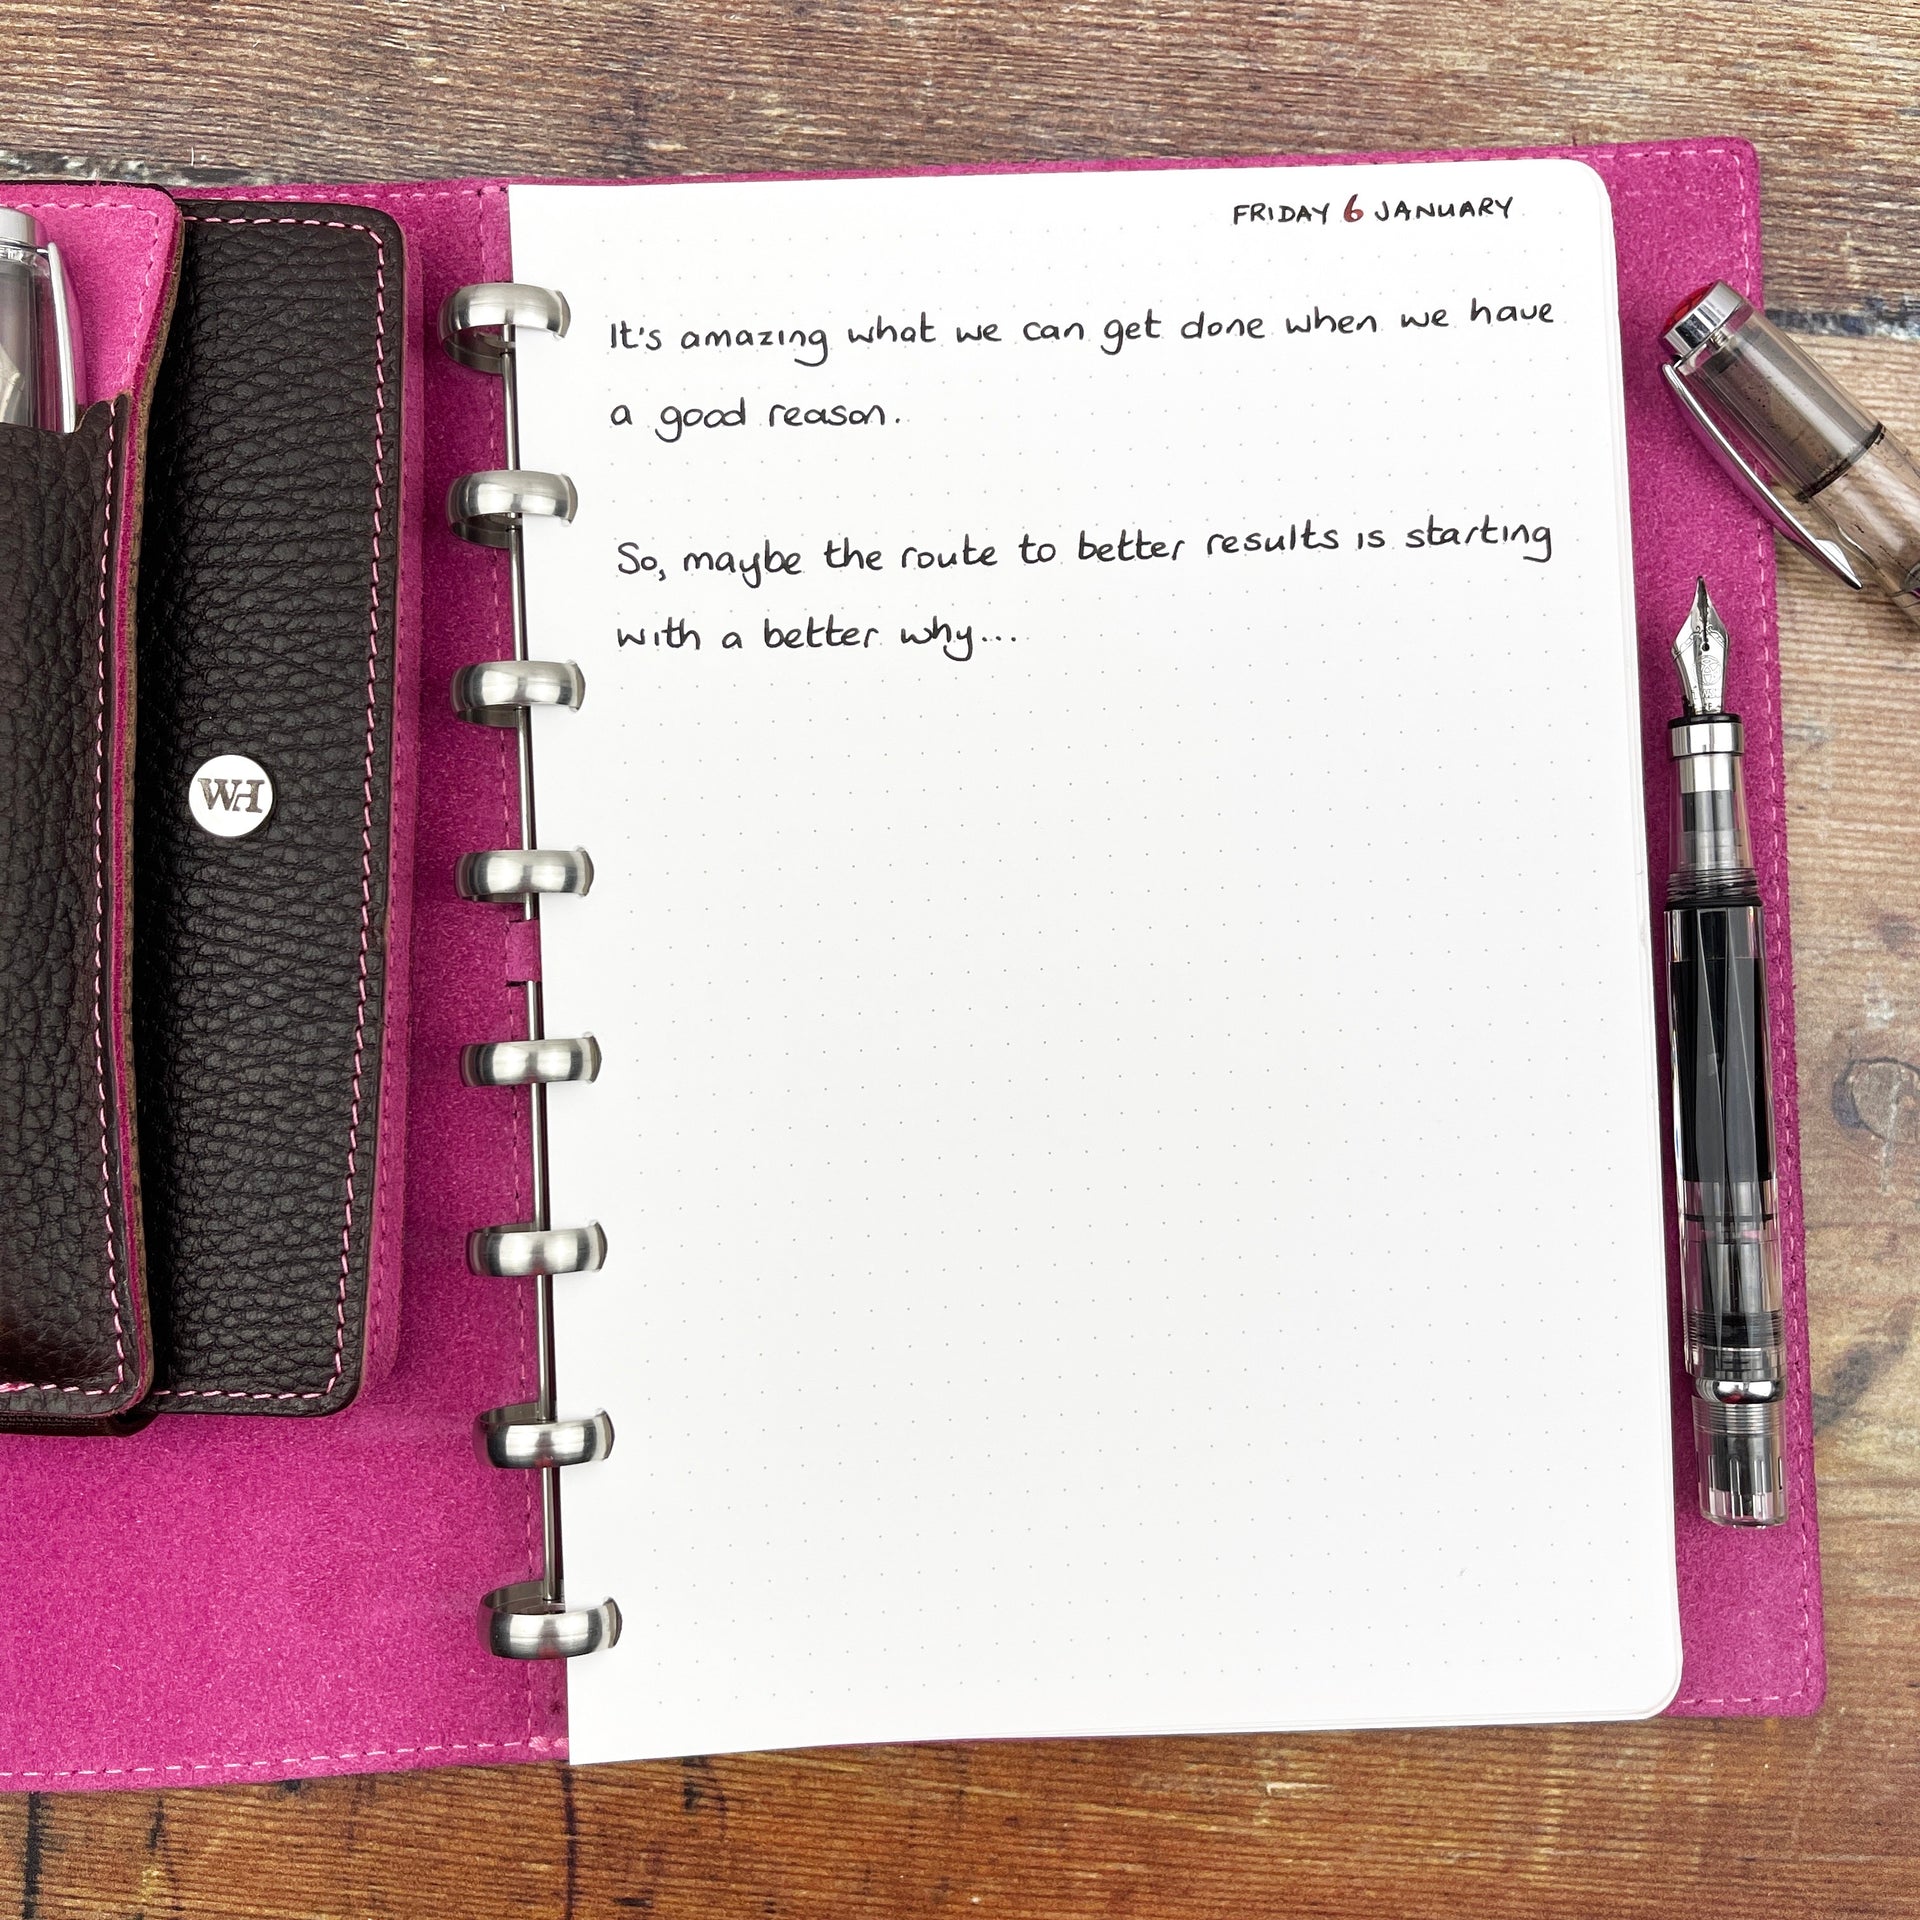 FRIDAY 6 JANUARY
It's amazing what we can get done when we have
a good reason.
So, maybe the route to better results is starting
with a better why...
WH